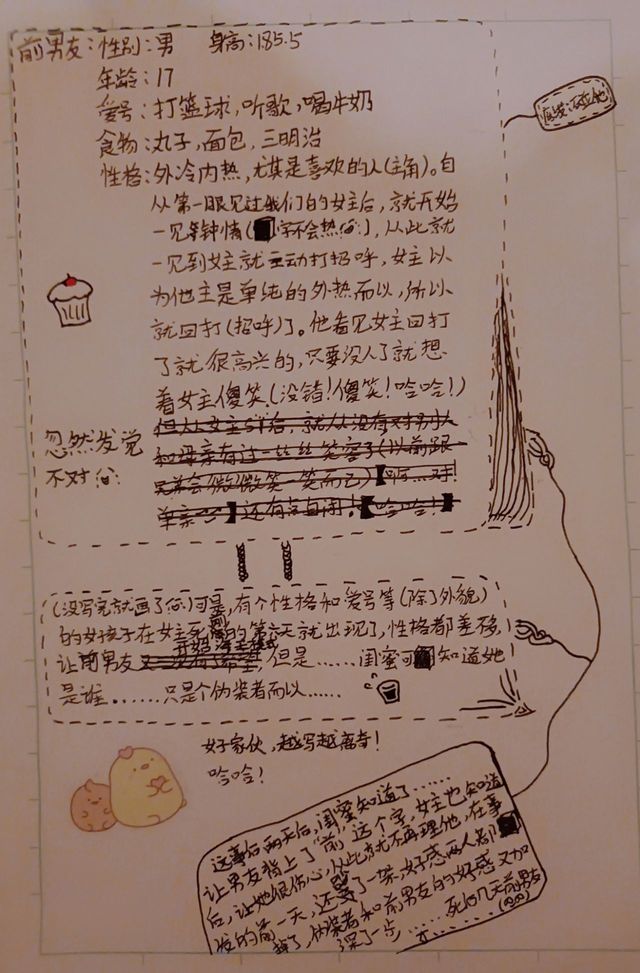 前男友：性别：男 身高：185.5
年龄：17
爱号：打篮球，听歌，喝牛奶
食物：丸子，面包，三明治
性格：外冷内热，尤其是喜欢的人(主角)。自
从第一眼见过我们的女主后，就开始
一见钟情(字不会热),从此就
一见到女主就主动打招呼，女主以
为他主是单纯的外热而以，所以
就回打(招呼)了。他看见女主回打
了就很高兴的，只要没人了就想
着女主傻笑(没错！傻笑！哈哈！)
但从女主以后，就从没有对别人
和母亲有过一丝丝笑容了(以前跟
会微微笑一笑而已)啊…对！
单亲 还有点自闭！哈哈！
忽然发觉
不对
(没写完就画了)可是，有个性格和爱号等(除了外貌)
的女孩子在女主死的第六天就出现了，性格都差移，
让前男友 但是……闺蜜可知道她
是谁……只是个伪装者而以……
好家伙，越写越离奇！
哈哈！
这事后两天后，闺蜜知道了……
让男友替上了“前”这个字，女主也知道
后，让她很伤心，从此就不再理他，在事
发的前一天，还了一架，好感两人都
掉了，伪装者和前男友的好感又加
深了一点……死的几天前男友